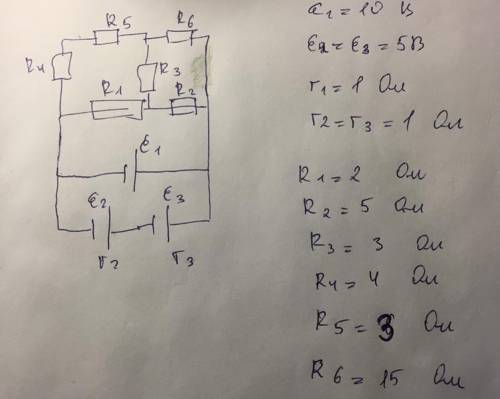 R5
R6
R4
R3
R1
R2
ε1
ε2
ε3
r2
r3
ε1 = 10 В
ε2 = ε3 = 5В
r1 = 1 Ом
r2 = r3 = 1 Ом
R1 = 2 Ом
R2 = 5 Ом
R3 = 3 Ом
R4 = 4 Ом
R5 = 3 Ом
R6 = 15 Ом